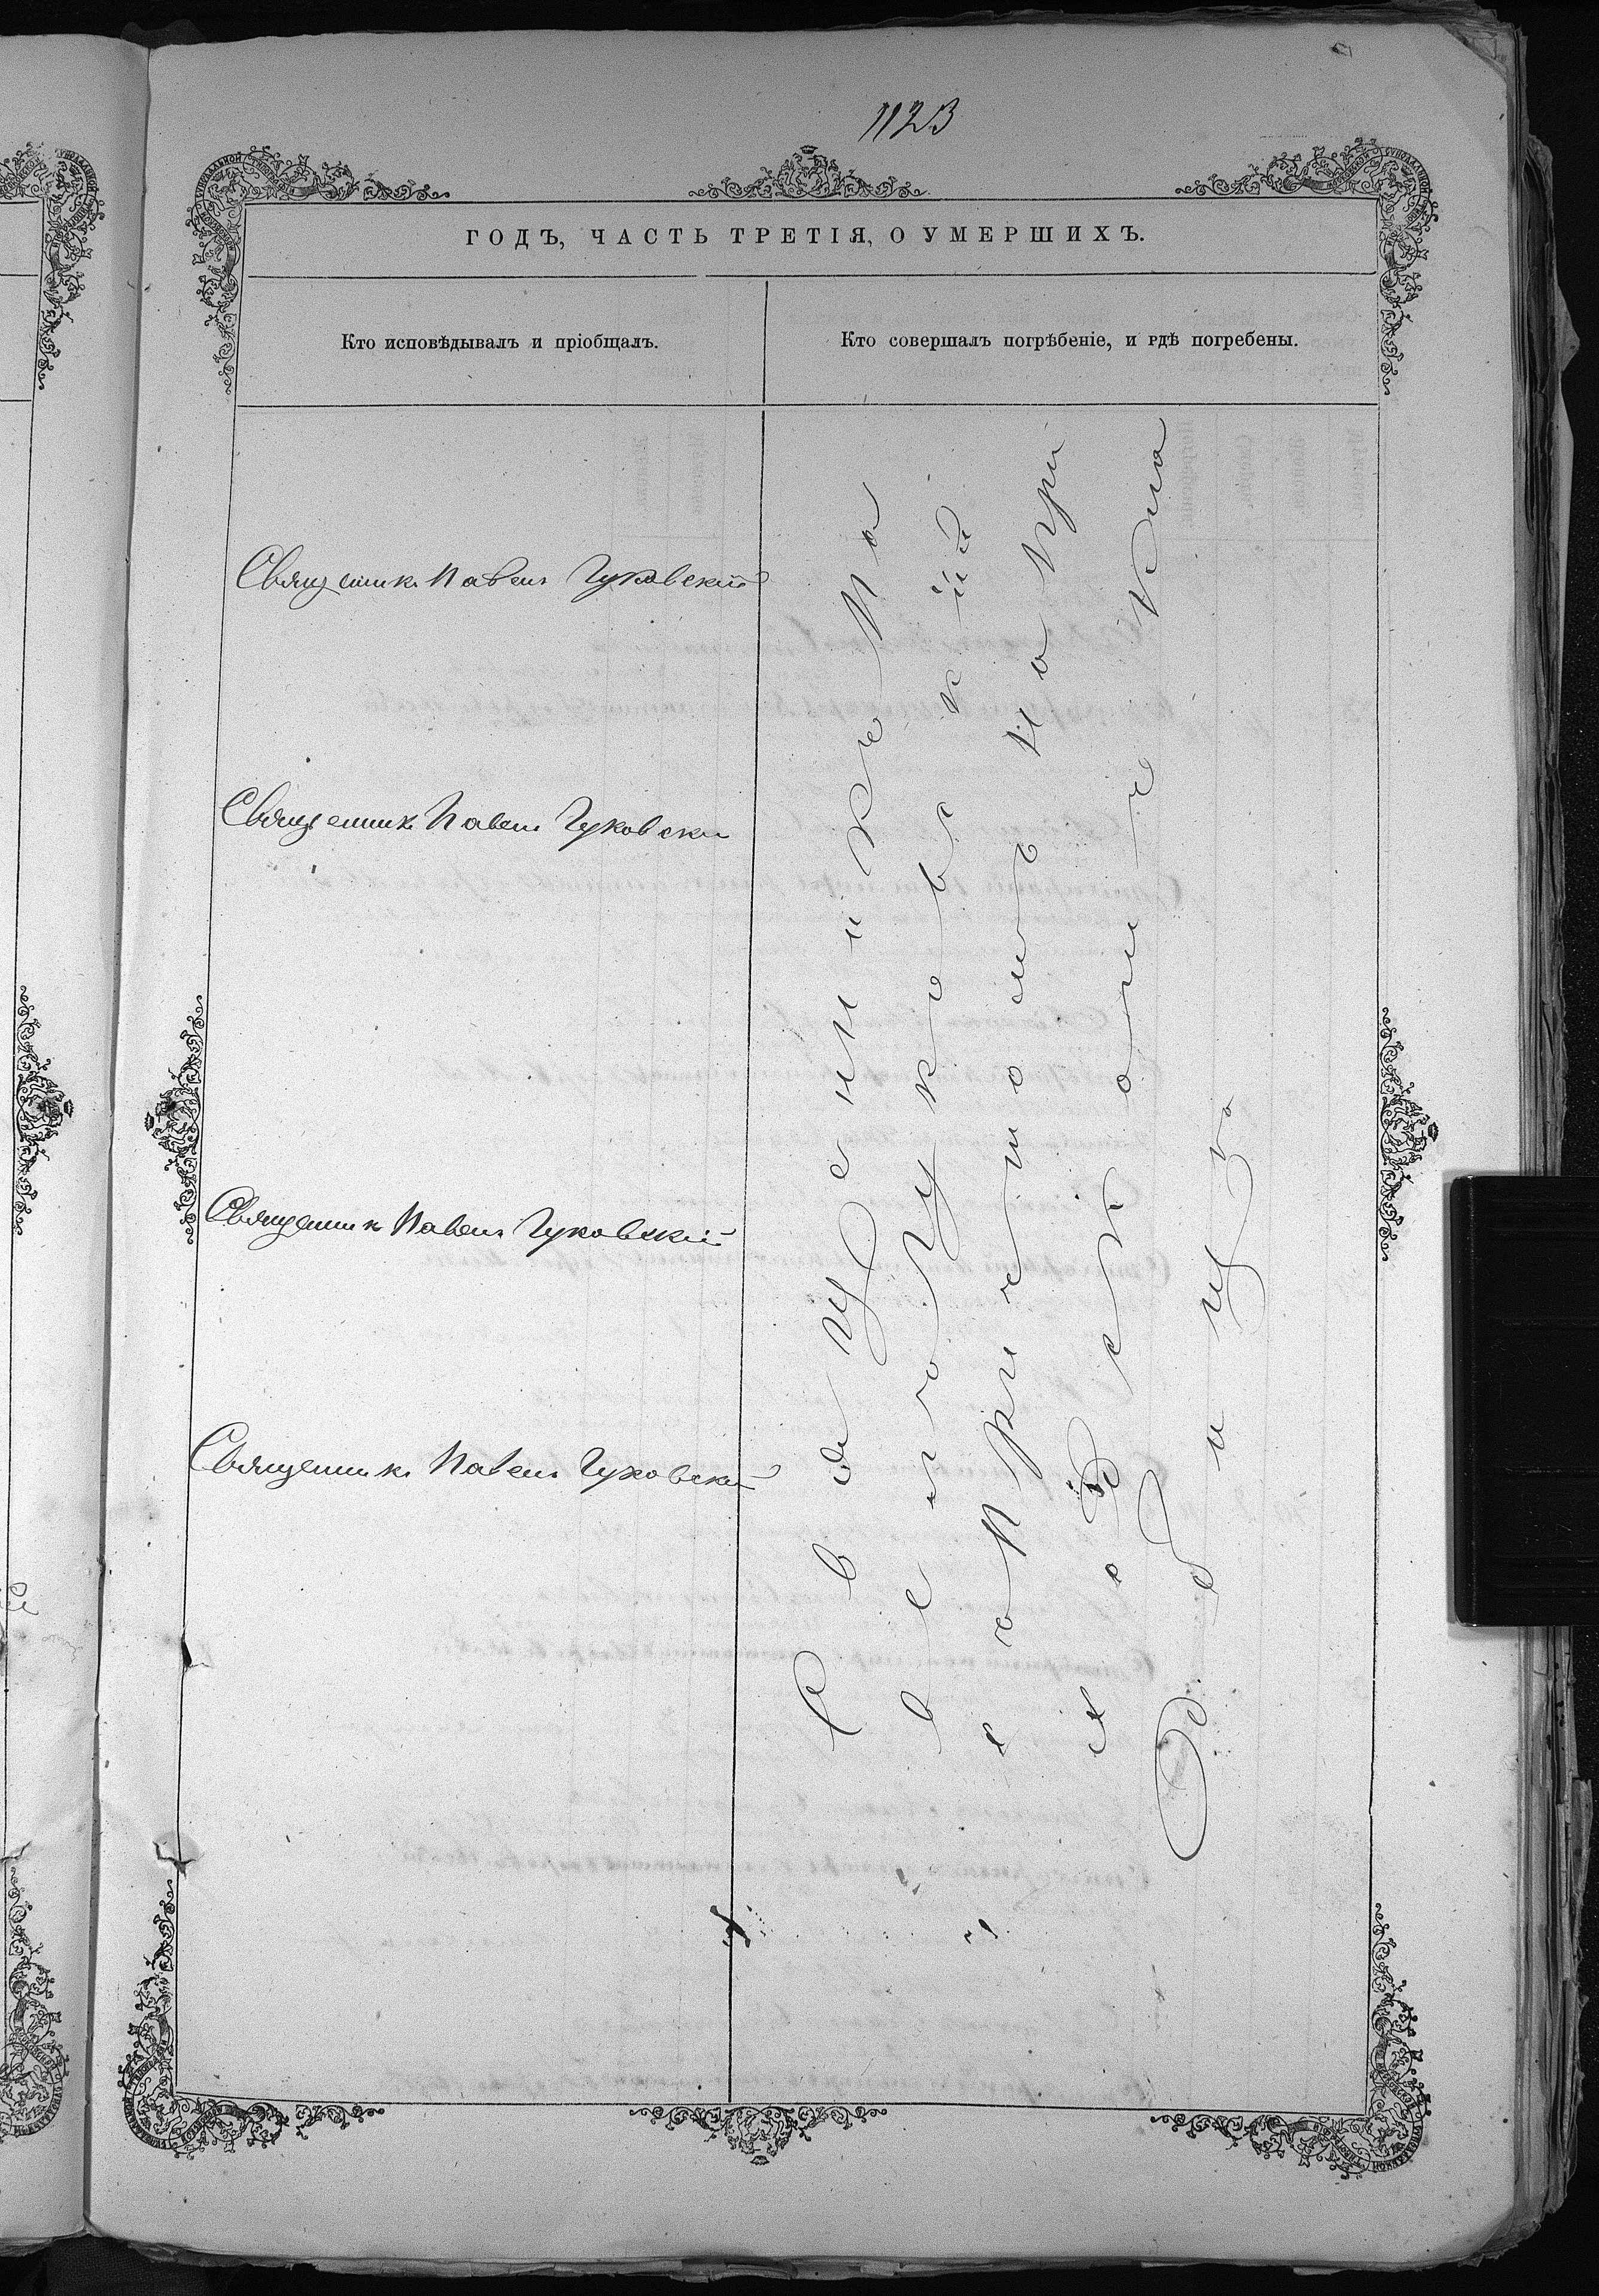 1123
ГОДЪ, ЧАСТЬ ТРЕТІЯ, О УМЕРШИХЪ.
Кто исповѣдывалъ и пріобщалъ.
Кто совершалъ погрѣбеніе, и гдѣ погребены.
Священник Павелъ Чуковскій
Священник Павелъ Чуковски
Священник Павелъ Чуковскій
Священник Павелъ Чуковскій
Священник Па
велъ Чуковскій
съ Причетомъ на При
ходскомъ Кла
дбищѣ